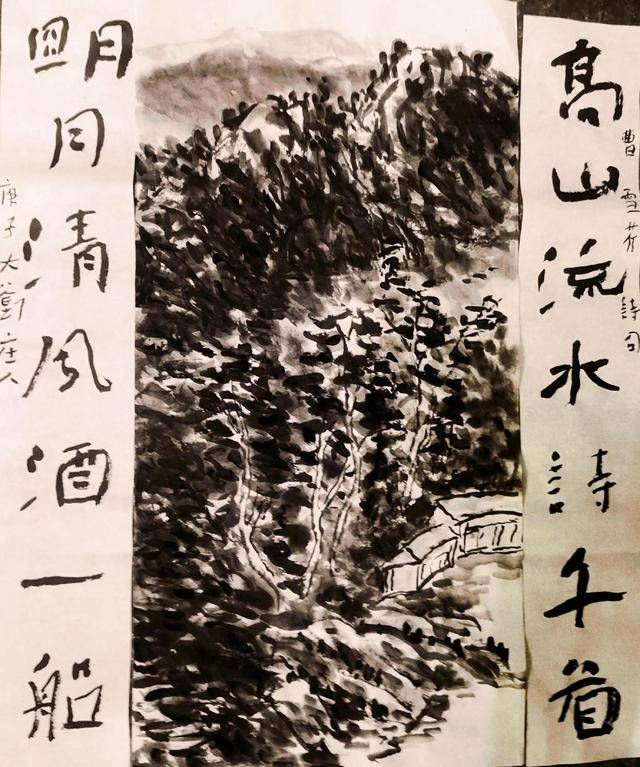 高山流水詩千首
曹雪芹詩句
明月清風酒一船
庚子大衛庄人